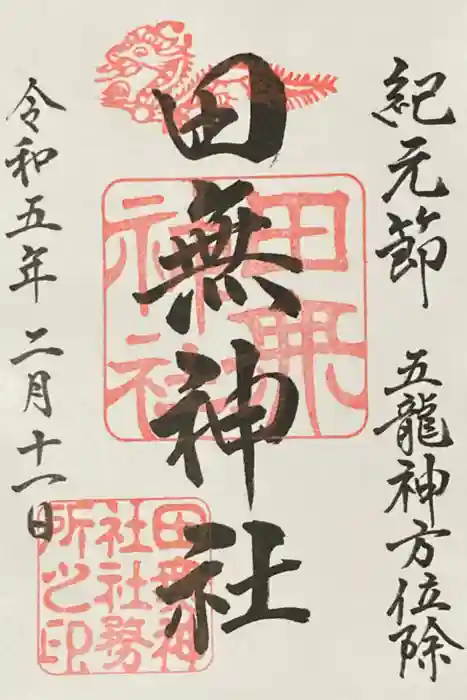 紀元節 五龍神方位除
田無神社
令和五年 二月十一日
田無神社
田無神社社務所之印